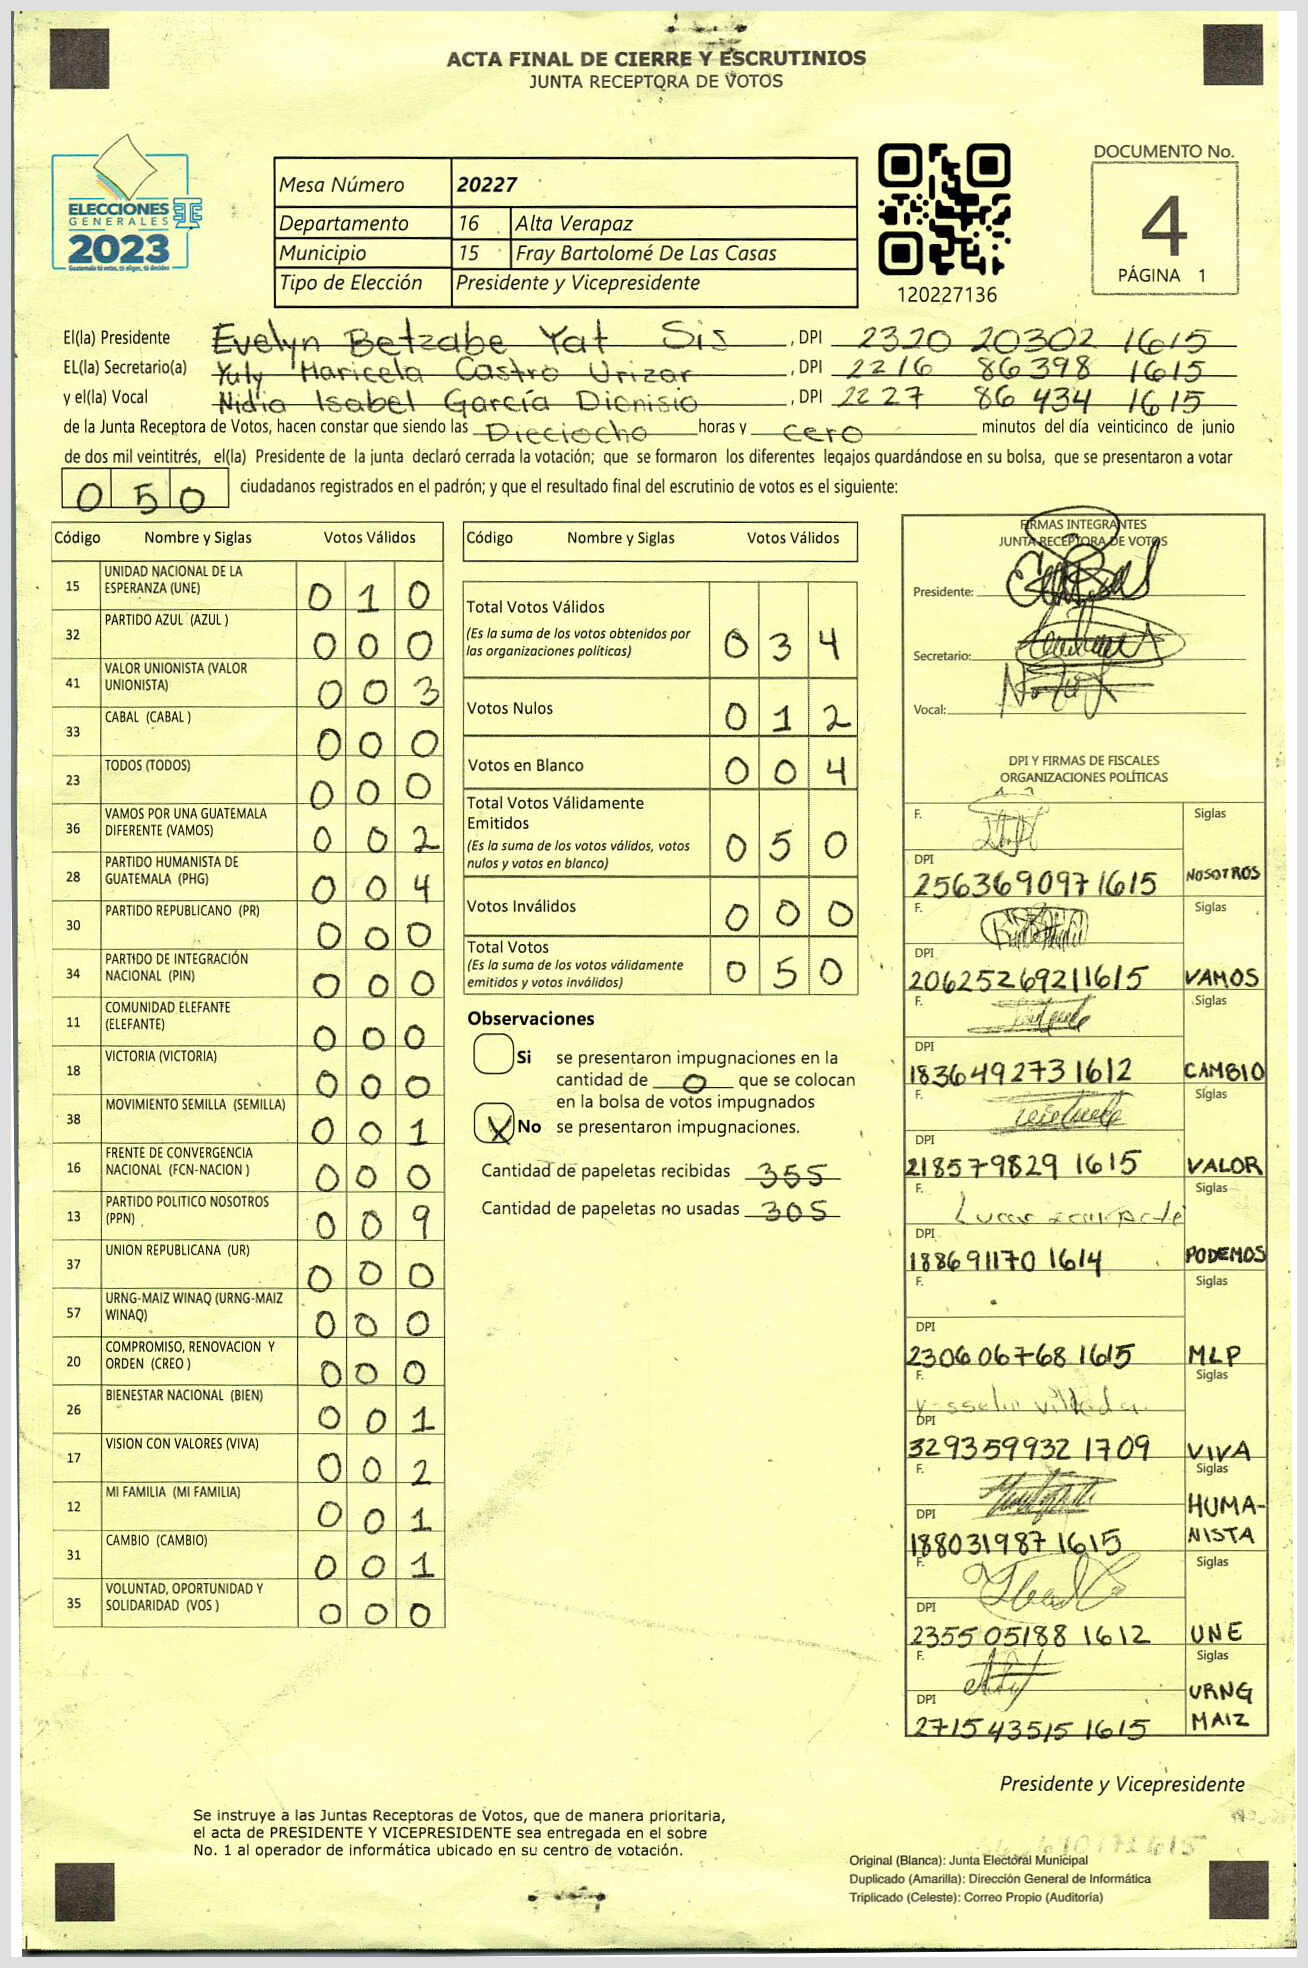 ACTA FINAL DE CIERRE Y ESCRUTINIOS
JUNTA RECEPTORA DE VOTOS
ELECCIONES
GENERALES
2023
Guatemala tú votas, tú eliges, tú decides
Mesa Número 20227
Departamento 16 Alta Verapaz
Municipio 15 Fray Bartolomé De Las Casas
Tipo de Elección Presidente y Vicepresidente
120227136
DOCUMENTO No.
4
PÁGINA 1
El(la) Presidente Evelyn Betzabe Yat Sis, DPI 2320 20302 1615
EL(la) Secretario(a) Yuly Maricela Castro Urizar, DPI 2216 86398 1615
y el(la) Vocal Nidia Isabel García Dionisio, DPI 2227 86434 1615
de la Junta Receptora de Votos, hacen constar que siendo las Dieciocho horas y cero minutos del día veinticinco de junio
de dos mil veintitrés, el(la) Presidente de la junta declaró cerrada la votación; que se formaron los diferentes legajos guardándose en su bolsa, que se presentaron a votar
050 ciudadanos registrados en el padrón; y que el resultado final del escrutinio de votos es el siguiente:
Código Nombre y Siglas Votos Válidos
15 UNIDAD NACIONAL DE LA ESPERANZA (UNE) 010
32 PARTIDO AZUL (AZUL ) 000
41 VALOR UNIONISTA (VALOR UNIONISTA) 003
33 CABAL (CABAL ) 000
23 TODOS (TODOS) 000
36 VAMOS POR UNA GUATEMALA DIFERENTE (VAMOS) 002
28 PARTIDO HUMANISTA DE GUATEMALA (PHG) 004
30 PARTIDO REPUBLICANO (PR) 000
34 PARTIDO DE INTEGRACIÓN NACIONAL (PIN) 000
11 COMUNIDAD ELEFANTE (ELEFANTE) 000
18 VICTORIA (VICTORIA) 000
38 MOVIMIENTO SEMILLA (SEMILLA) 001
16 FRENTE DE CONVERGENCIA NACIONAL (FCN-NACION ) 000
13 PARTIDO POLITICO NOSOTROS (PPN) 009
37 UNION REPUBLICANA (UR) 000
57 URNG-MAIZ WINAQ (URNG-MAIZ WINAQ) 000
20 COMPROMISO, RENOVACION Y ORDEN (CREO ) 000
26 BIENESTAR NACIONAL (BIEN) 001
17 VISION CON VALORES (VIVA) 002
12 MI FAMILIA (MI FAMILIA) 001
31 CAMBIO (CAMBIO) 001
35 VOLUNTAD, OPORTUNIDAD Y SOLIDARIDAD (VOS ) 000
Código Nombre y Siglas Votos Válidos
Total Votos Válidos 034
(Es la suma de los votos obtenidos por
las organizaciones políticas)
Votos Nulos 012
Votos en Blanco 004
Total Votos Válidamente
Emitidos 050
(Es la suma de los votos válidos, votos
nulos y votos en blanco)
Votos Inválidos 000
Total Votos 050
(Es la suma de los votos válidamente
emitidos y votos inválidos)
Observaciones
Si se presentaron impugnaciones en la
cantidad de 0 que se colocan
en la bolsa de votos impugnados
X No se presentaron impugnaciones.
Cantidad de papeletas recibidas 355
Cantidad de papeletas no usadas 305
FIRMAS INTEGRANTES
JUNTA RECEPTORA DE VOTOS
Presidente:
Secretario:
Vocal:
DPI Y FIRMAS DE FISCALES
ORGANIZACIONES POLÍTICAS
F. Siglas
DPI
2563690971615 NOSOTROS
F. Siglas
DPI
20625269211615 VAMOS
F. Siglas
DPI
183649273 1612 CAMBIO
F. Siglas
DPI
218579829 1615 VALOR
F. Siglas
DPI
188691170 1614 PODEMOS
F. Siglas
DPI
230606768 1615 MLP
F. Siglas
DPI
329359932 1709 VIVA
F. Siglas
DPI
188031987 1615 HUMANISTA
F. Siglas
DPI
235505188 1612 UNE
F. Siglas
DPI
271543515 1615 URNG MAIZ
Presidente y Vicepresidente
Se instruye a las Juntas Receptoras de Votos, que de manera prioritaria,
el acta de PRESIDENTE Y VICEPRESIDENTE sea entregada en el sobre
No. 1 al operador de informática ubicado en su centro de votación.
Original (Blanca): Junta Electoral Municipal
Duplicado (Amarilla): Dirección General de Informática
Triplicado (Celeste): Correo Propio (Auditoría)